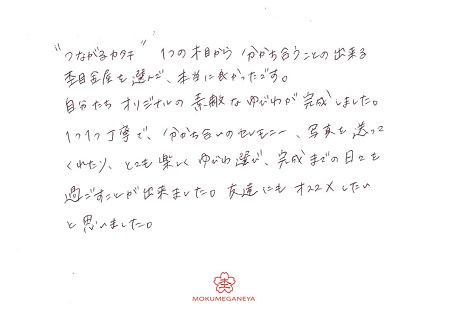 "つながるカタチ" 1つの木目から 分かち合うことの出来る
杢目金屋を選んで、本当に良かったです。
自分たち オリジナルの 素敵な ゆびわが 完成しました。
1つ1つ丁寧で、分かち合いのセレモニー、写真を 送って
くれたり、とても 楽しく ゆびわ選び、完成までの日々を
過ごすことが出来ました。友達にも オススメしたい
と思いました。
杢
MOKUMEGANEYA